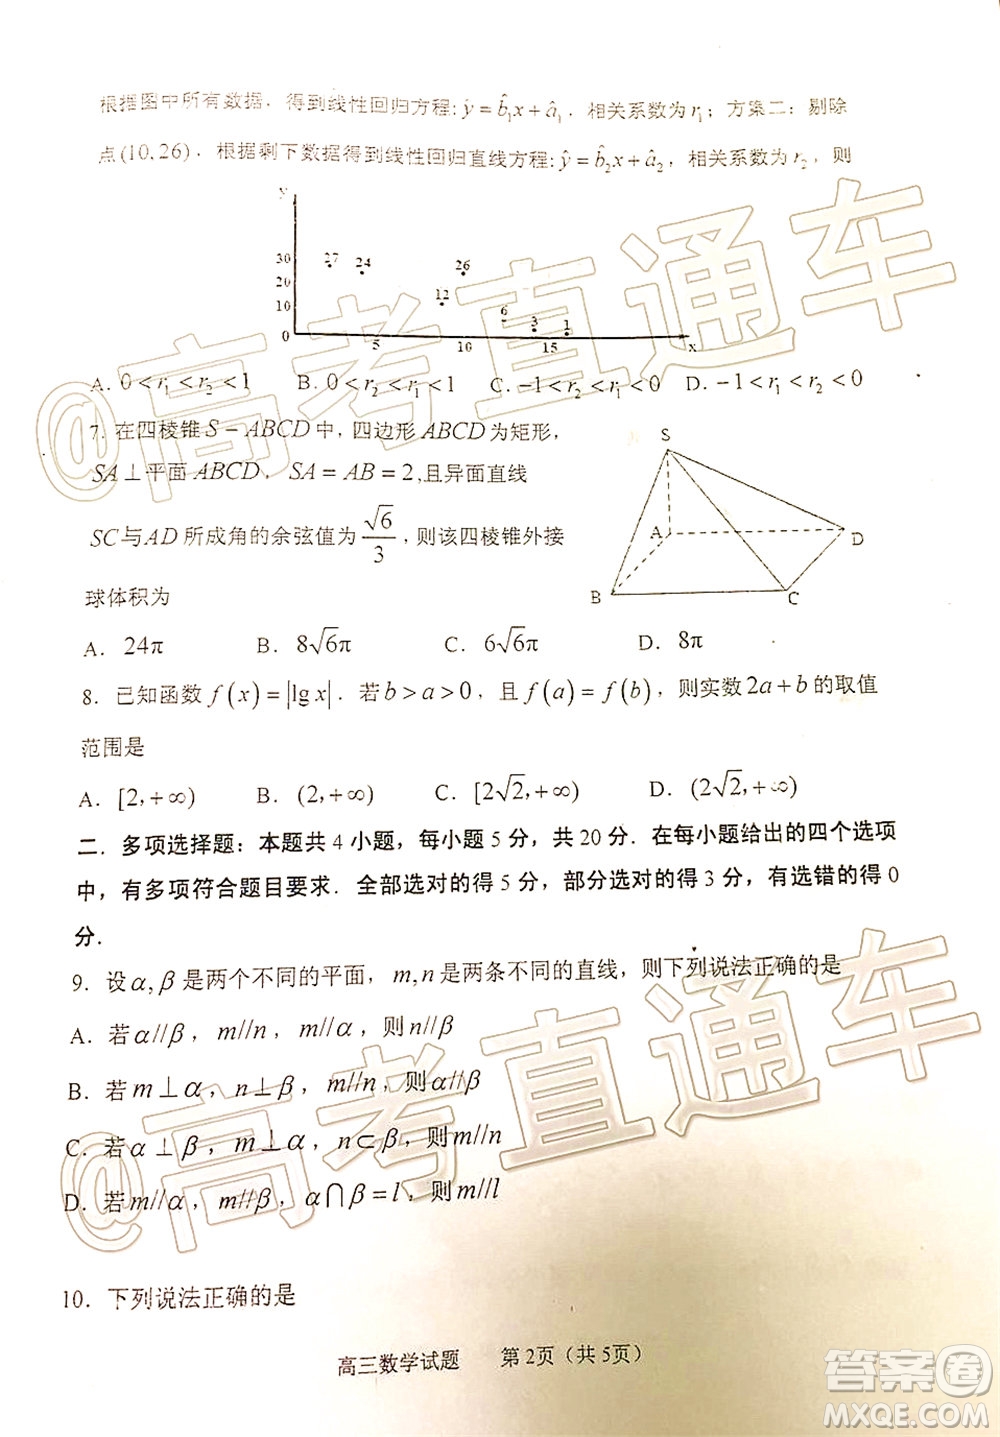 根据图中所有数据，得到线性回归方程: ŷ = b̂₁x + â₁，相关系数为 r₁；方案二：剔除
点 (10, 26)，根据剩下数据得到线性回归直线方程: ŷ = b̂₂x + â₂，相关系数为 r₂，则
y
30
20
10
0
27
24
26
12
6
3
1
5
10
15
x
A. 0 < r₁ < r₂ < 1  B. 0 < r₂ < r₁ < 1  C. −1 < r₂ < r₁ < 0  D. −1 < r₁ < r₂ < 0
7. 在四棱锥 S − ABCD 中，四边形 ABCD 为矩形，
SA ⊥ 平面 ABCD，SA = AB = 2，且异面直线
SC 与 AD 所成角的余弦值为 √6/3，则该四棱锥外接
球体积为
S
A
B
C
D
A． 24π  B． 8√6π  C． 6√6π  D． 8π
8．已知函数 f(x) = |lg x|．若 b > a > 0，且 f(a) = f(b)，则实数 2a + b 的取值
范围是
A． [2, +∞)  B． (2, +∞)  C． [2√2, +∞)  D． (2√2, +∞)
二．多项选择题：本题共 4 小题，每小题 5 分，共 20 分．在每小题给出的四个选项
中，有多项符合题目要求．全部选对的得 5 分，部分选对的得 3 分，有选错的得 0
分．
9．设 α, β 是两个不同的平面，m, n 是两条不同的直线，则下列说法正确的是
A．若 α//β，m//n，m//α，则 n//β
B．若 m ⊥ α，n ⊥ β，m//n，则 α//β
C．若 α ⊥ β，m ⊥ α，n ⊂ β，则 m//n
D．若 m//α，m//β，α∩β = l，则 m//l
10．下列说法正确的是
高三数学试题  第 2页（共 5页）
@高考直通车
@高考直通车
答案圈
MXQE.COM